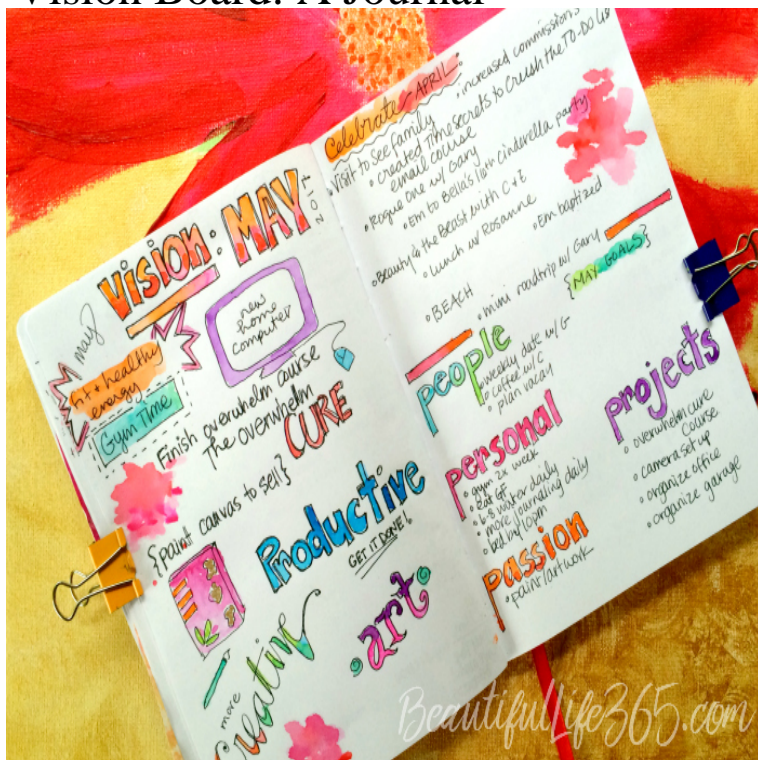 Vision Board: A Journal
Vision: MAY
2017
may
fit + healthy
energy
Gym Time
new
home
computer
Finish overwhelm course
The overwhelm
CURE
{paint canvas to sell}
Productive
GET IT DONE!
more
Creative
art
Celebrate APRIL:
• Visit to see family
• increased commissions
• created Time secrets to Crush the TO-DO list
email course
• Rogue One w/ Gary
• Em to Bella's 10th Cinderella party
• Beauty & the Beast with C + E
• Lunch w/ Rosanne
• Em baptized
• BEACH
• mini roadtrip w/ Gary
{MAY GOALS}
people
• weekly date w/ G
• coffee w/ C
• plan vacay
personal
• gym 2x week
• eat GF
• 6-8 water daily
• more journaling daily
• bed by 10pm
passion
• paint/artwork
projects
• overwhelm cure
course
• camera set up
• organize office
• organize garage
BeautifulLife365.com